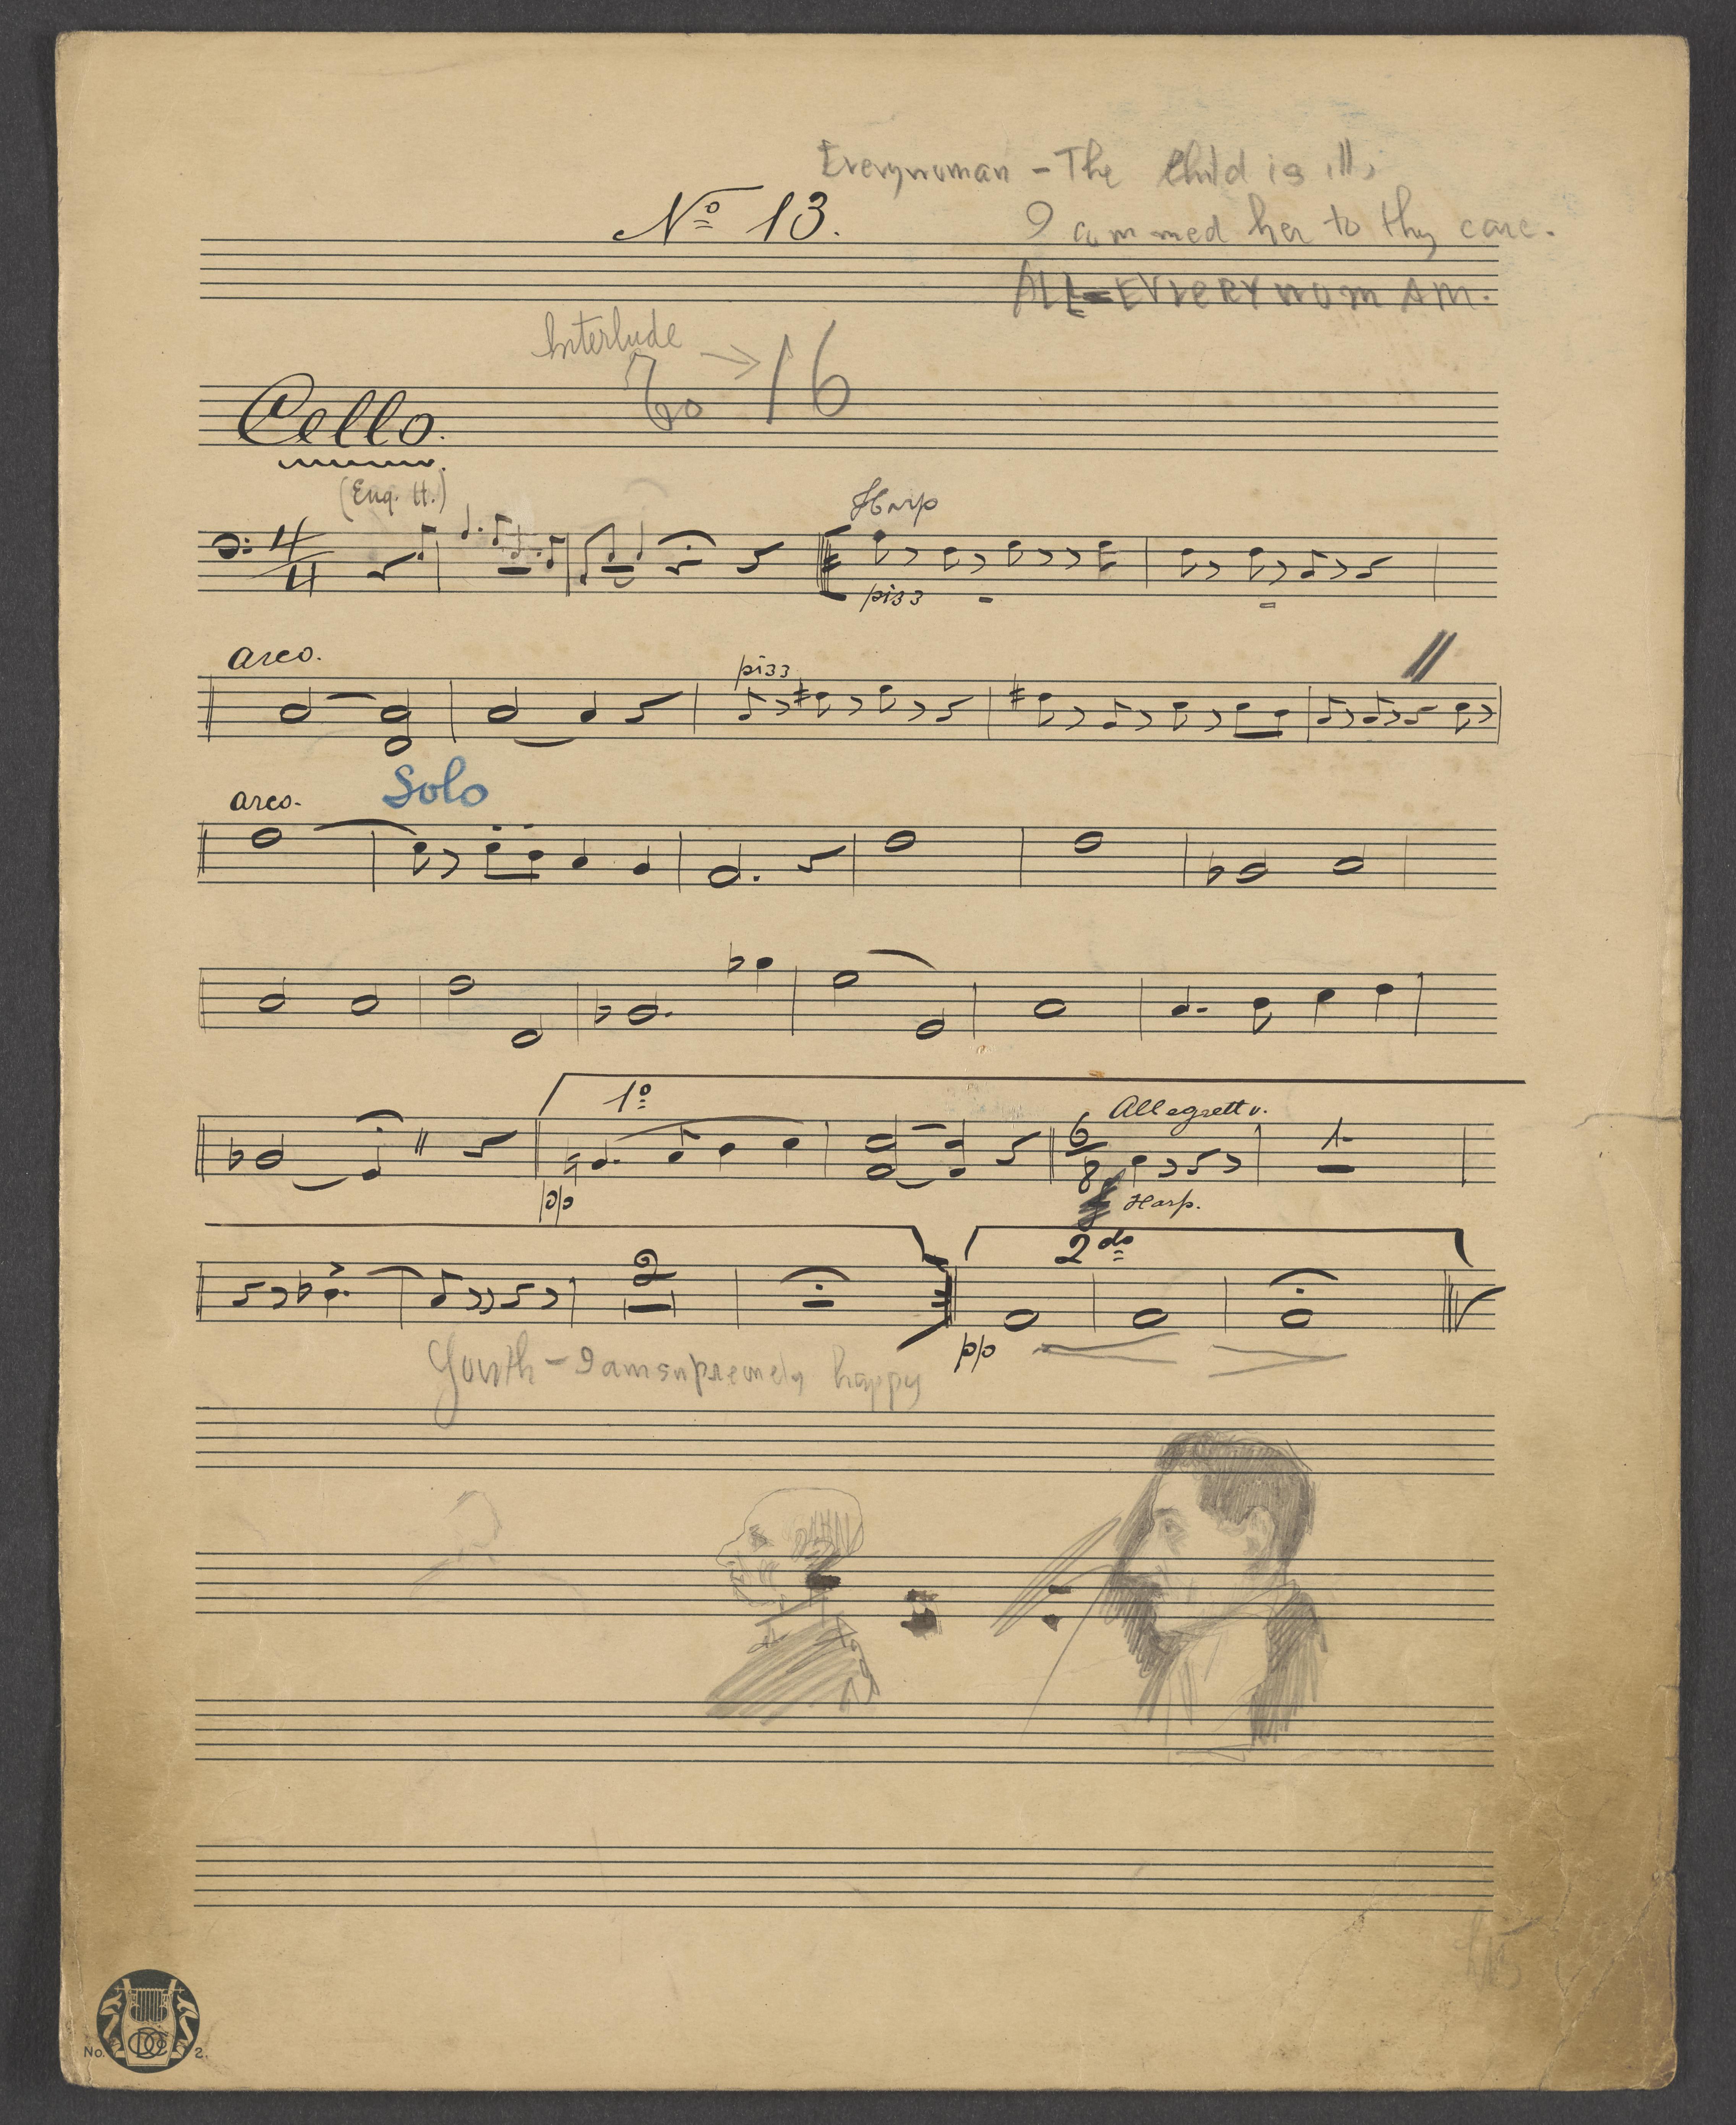 Everywoman - The Child is ill,
No 13.
I commed her to thy care.
ALL - EVEERYWOMAM.
Interlude
To → 16
Cello.
(Eng. H.)
Harp
4/4
pizz
arco.
pizz
Solo
arco.
1o
Allegretto.
6/8
pp
Harp.
1
2do
2
pp
Youth - I am supremely happy
No. 2.